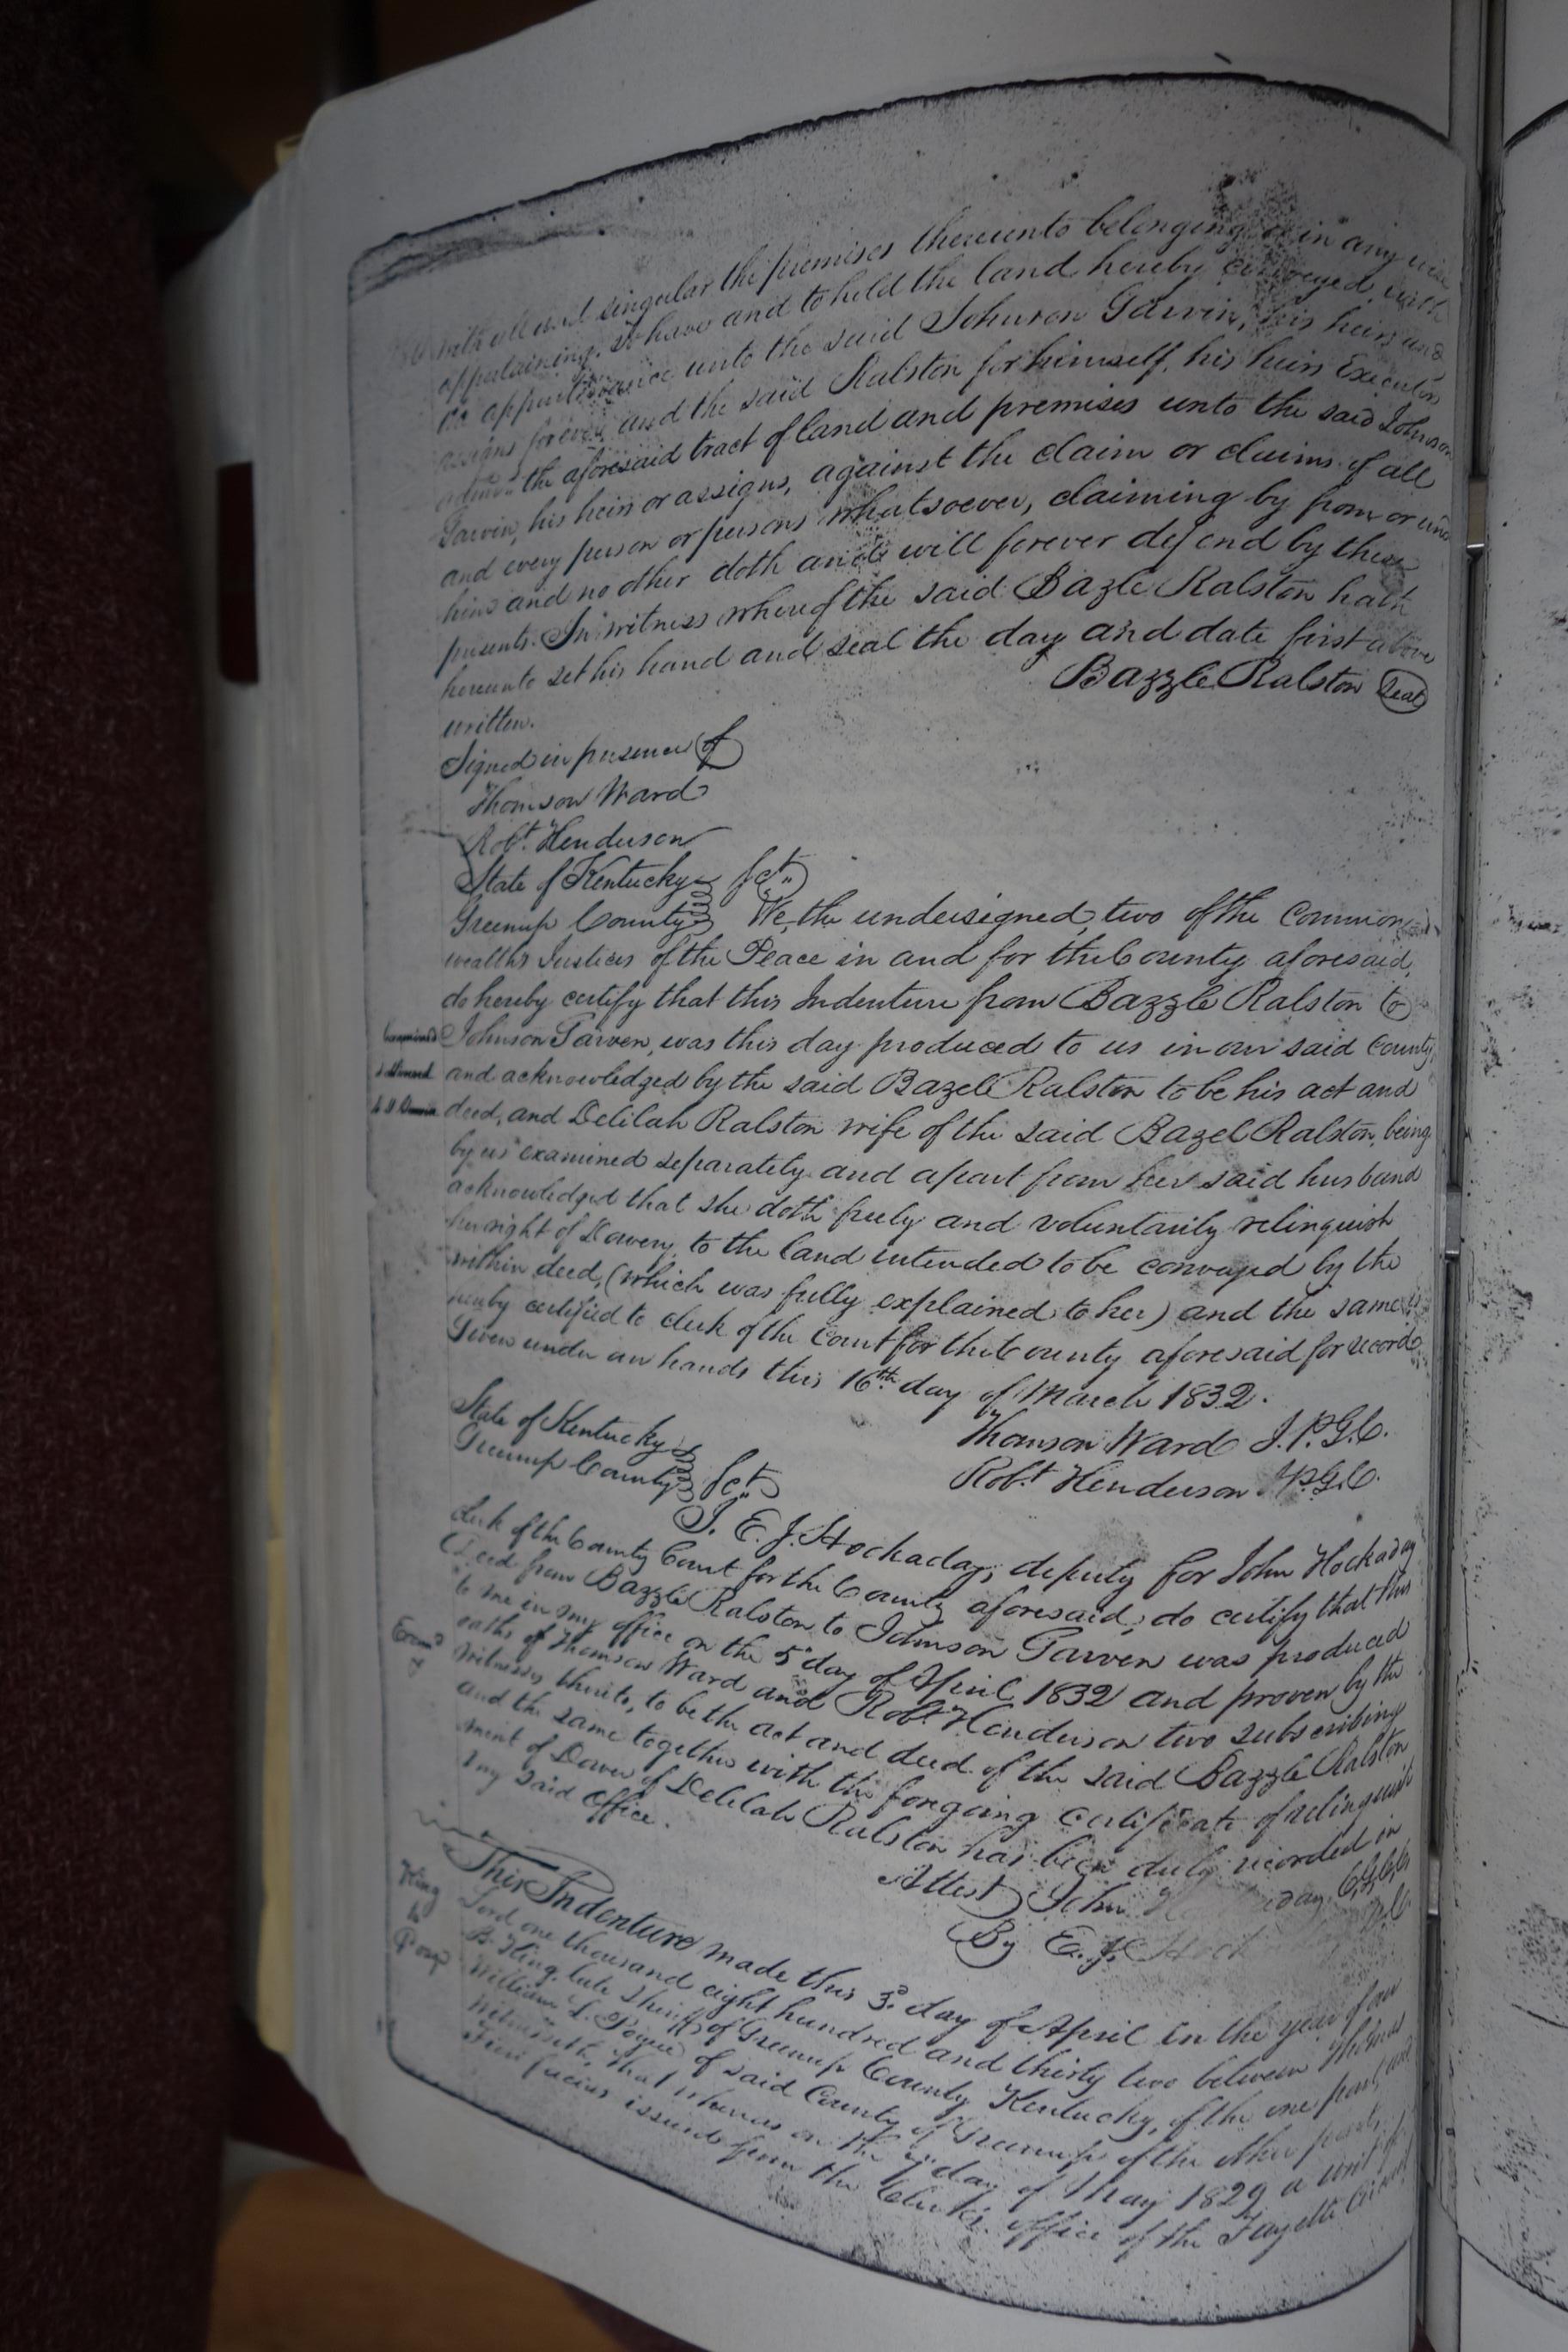 with all and singular the premises thereunto belonging or in any wise
appertaining. To have and to hold the land hereby conveyed with
the appurtenance unto the said Johnson Garvin, his heirs and
assigns forever, and the said Ralston for himself, his heirs Executors
admrs the aforesaid tract of land and premises unto the said Johnson
Garvin, his heirs or assigns, against the claim or claims of all
and every person or persons whatsoever, claiming by from or under
him and no other doth and will forever defend by these
presents. In witness whereof the said Bazle Ralston hath
hereunto set his hand and seal the day and date first above
written.
Bazzle Ralston Seal
Signed in presence of
Thomson Ward
Robt. Henderson
State of Kentucky
Greenup County Sct.
We, the undersigned, two of the Common
wealths Justices of the Peace in and for the County aforesaid,
do hereby certify that this Indenture from Bazzle Ralston to
Johnson Garven, was this day produced to us in our said County
and acknowledged by the said Bazel Ralston to be his act and
deed, and Delilah Ralston wife of the said Bazel Ralston, being
by us examined separately and apart from her said husband
acknowledged that she doth freely and voluntarily relinquish
her right of Dowery, to the land intended to be conveyed by the
within deed, (which was fully explained to her) and the same is
hereby certified to clerk of the Court for the County aforesaid for record
Given under our hands this 16th day of March 1832.
Thomson Ward J.P.G.C.
Robt Henderson J.P.G.C.
State of Kentucky
Greenup County Sct.
I. E. J. Hockaday, deputy for John Hockaday
clerk of the County Court for the County aforesaid, do certify that this
Deed from Bazzle Ralston to Johnson Garven was produced
to me in my office on the 5 day of April 1832 and proven by the
oaths of Thomson Ward and Robt. Henderson two subscribing
Witnesses thereto, to be the act and deed of the said Bazzle Ralston
and the same together with the foregoing certificate of relinquish
ment of Dower of Delilah Ralston has been duly recorded in
my said office.
Attest John Hockaday
By E. J. Hockaday
King
to
This Indenture made this 3d day of April in the year of our
Lord one thousand eight hundred and thirty two between Thomas
B. King late Sheriff of Greenup County Kentucky, of the one part, and
William L. of said County of Greenup of the other part,
Witnesseth, that whereas on the day of May 1829 a writ of
Fieri facias issued from the Clerk's office of the Fayette Circuit